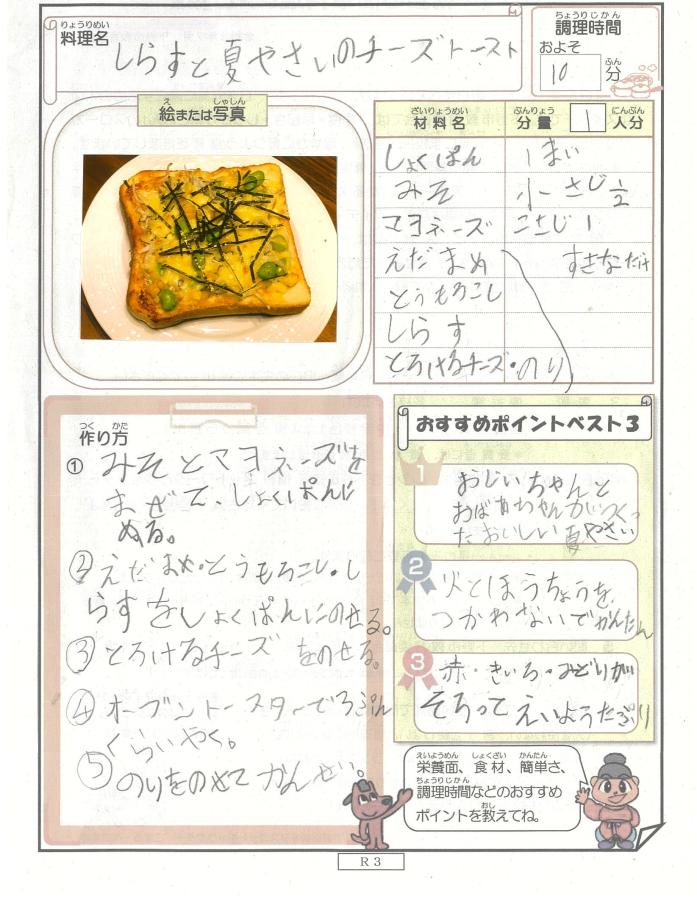 りょうりめい
料理名
しらすと夏やさいのチーズトースト
ちょうりじかん
調理時間
およそ
10
ぷん
分
え しゃしん
絵または写真
ざいりょうめい ぶんりょう にんぶん
材料名 分量 1 人分
しょくぱん 1まい
みそ 小さじ1/2
マヨネーズ こさじ1
えだまめ すきなだけ
とうもろこし
しらす
とろけるチーズ・のり
つく かた
作り方
① みそとマヨネーズを
まぜて、しょくぱんに
ぬる。
②えだまめ・とうもろこし・し
らすをしょくぱんにのせる。
③とろけるチーズをのせる。
④オーブントースターで3ぷん
くらいやく。
⑤のりをのせてかんせい。
おすすめポイントベスト3
1
おじいちゃんと
おばあちゃんがつくっ
たおいしい夏やさい
2
火とほうちょうを
つかわないでかんたん
3
赤・きいろ・みどりが
そろってえいようたぷり
えいようめん しょくざい かんたん
栄養面、食材、簡単さ、
ちょうりじかん
調理時間などのおすすめ
おし
ポイントを教えてね。
R3